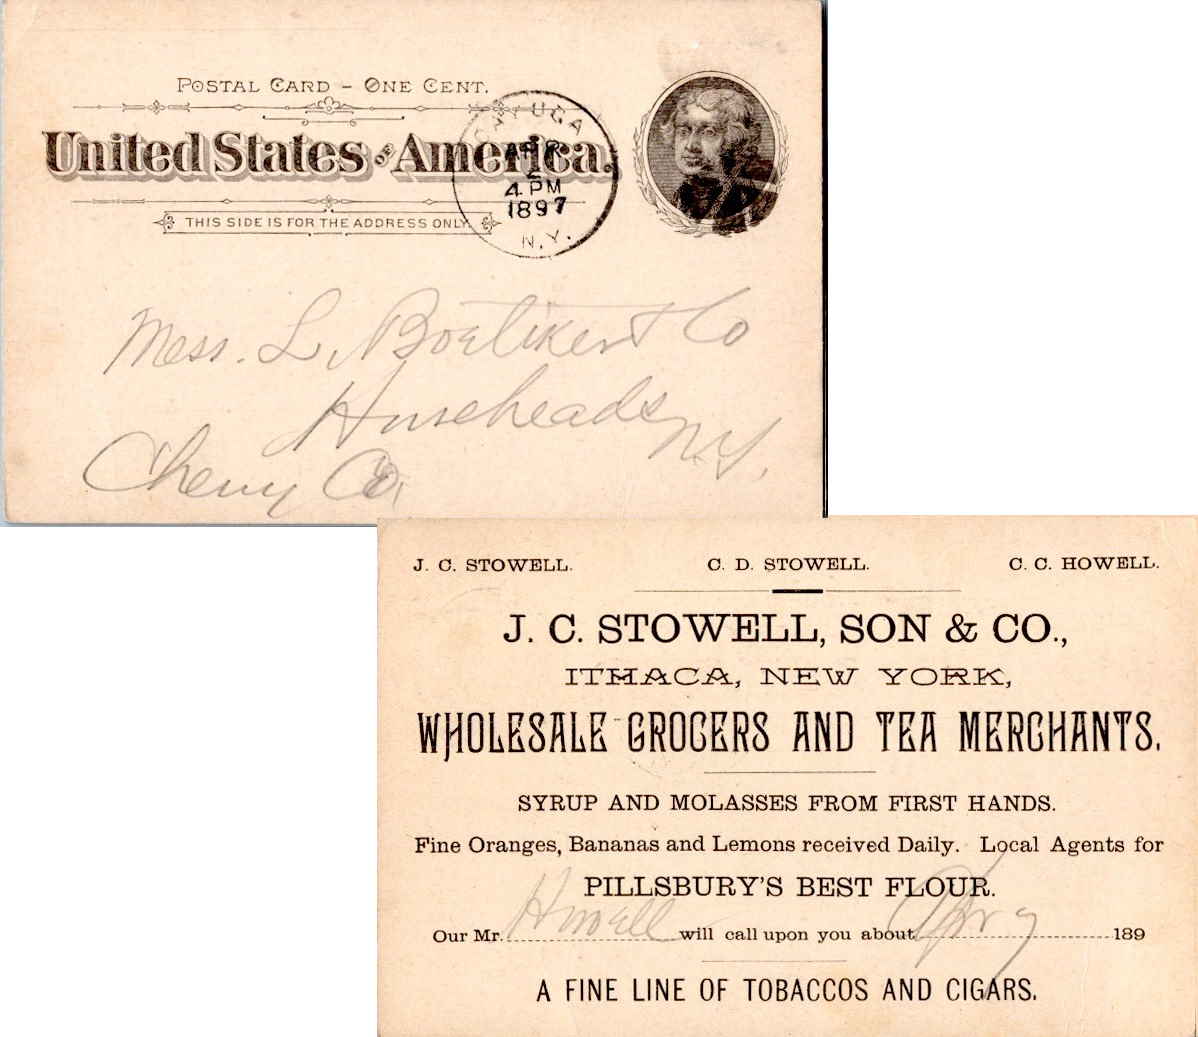 POSTAL CARD - ONE CENT.
United States OF America.
THIS SIDE IS FOR THE ADDRESS ONLY.
CAYUGA
APR
2
4 PM
1897
N.Y.
Mess. L. Boetiker & Co
Horseheads
N.Y.
Co.
J. C. STOWELL.
C. D. STOWELL.
C. C. HOWELL.
J. C. STOWELL, SON & CO.,
ITHACA, NEW YORK,
WHOLESALE GROCERS AND TEA MERCHANTS.
SYRUP AND MOLASSES FROM FIRST HANDS.
Fine Oranges, Bananas and Lemons received Daily. Local Agents for
PILLSBURY'S BEST FLOUR.
Our Mr. Howell will call upon you about Apr 7 189
A FINE LINE OF TOBACCOS AND CIGARS.